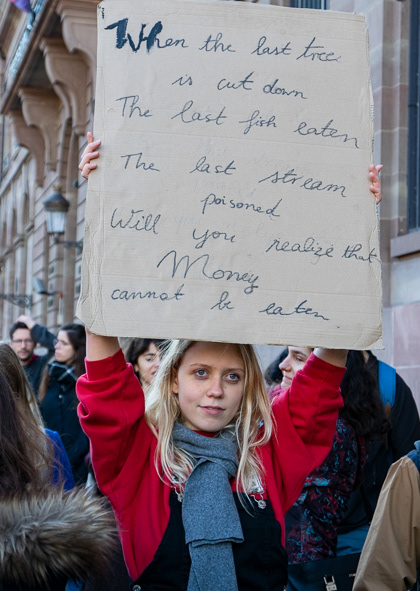 When the last tree
is cut down
The last fish eaten
The last stream
poisoned
Will you realize that
Money
cannot be eaten